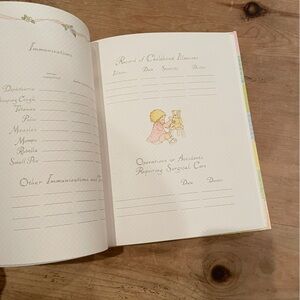 Immunizations
Diphtheria
Whooping Cough
Tetanus
Polio
Measles
Mumps
Rubella
Small Pox
Other Immunizations and
Record of Childhood Illnesses
Illness Date Severity Doctor
Operations or Accidents
Requiring Surgical Care
Date Doctor